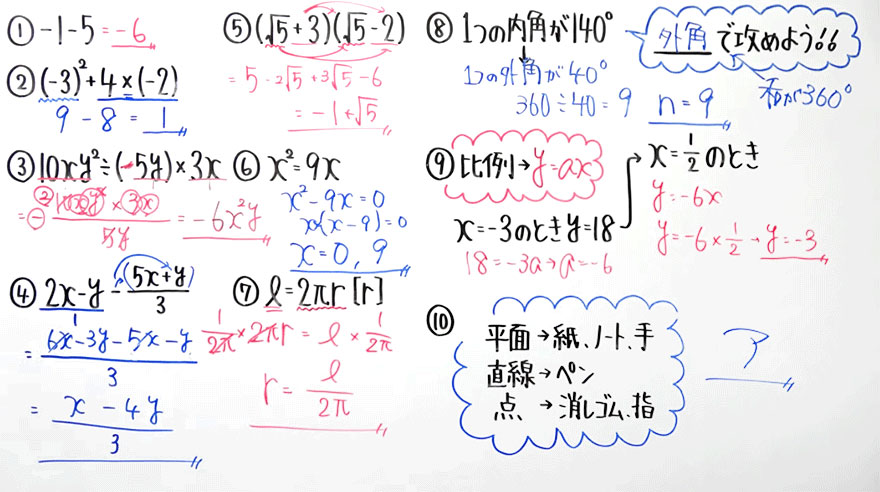 ① -1-5=-6
② (-3)²+4×(-2)
9-8=1
③ 10xy²÷(-5y)×3x
=-6x²y
④ 2x-y-(5x+y)/3
=(6x-3y-5x-y)/3
=(x-4y)/3
⑤ (√5+3)(√5-2)
=5-2√5+3√5-6
=-1+√5
⑥ x²=9x
x²-9x=0
x(x-9)=0
x=0,9
⑦ ℓ=2πr [r]
1/2π×2πr=ℓ×1/2π
r=ℓ/2π
⑧ 1つの内角が140°
1つの外角が40°
360÷40=9 n=9
外角で攻めよう!!
和が360°
⑨ 比例→y=ax
x=-3のときy=18
18=-3a→a=-6
x=1/2のとき
y=-6x
y=-6×1/2→y=-3
⑩
平面→紙、ノート、手
直線→ペン
点→消しゴム、指
ア